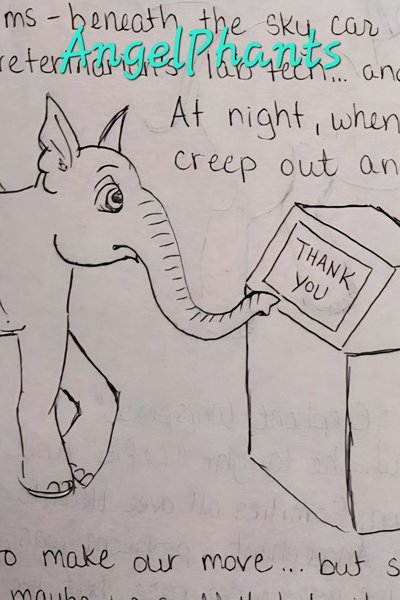 ms - beneath the sky car
AngelPhants
lab tech... an
At night, when
creep out an
THANK
YOU
o make our move... but s
maybe